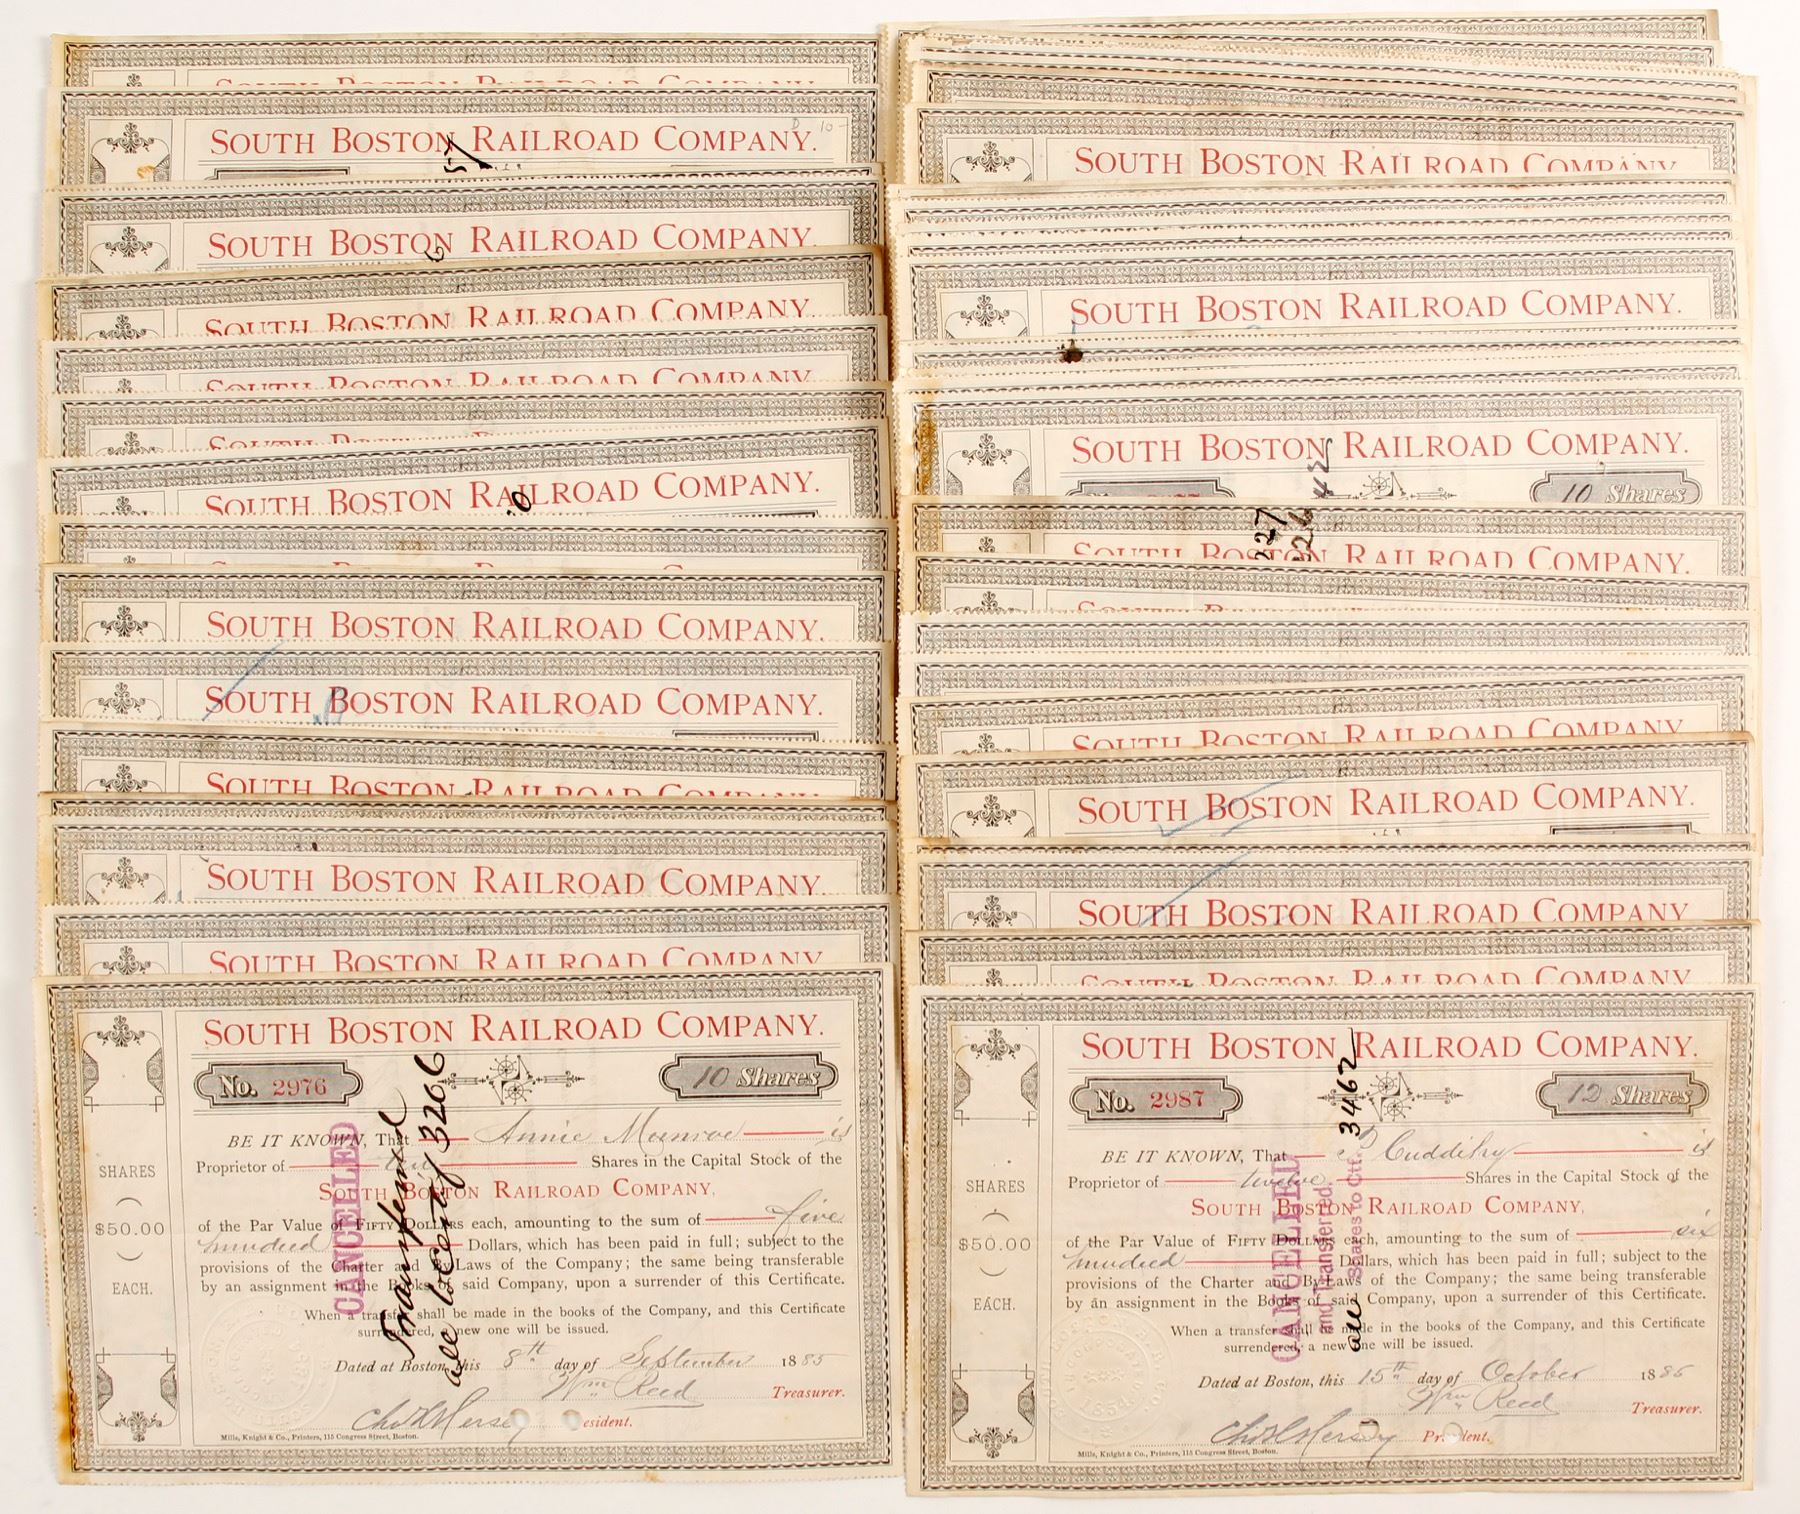 SOUTH BOSTON RAILROAD COMPANY.
SOUTH BOSTON RAILROAD COMPANY.
D 10-
57
SOUTH BOSTON RAILROAD COMPANY.
6
SOUTH BOSTON RAILROAD COMPANY.
SOUTH BOSTON RAILROAD COMPANY
SOUTH
SOUTH BOSTON RAILROAD COMPANY.
SOUTH BOSTON RAILROAD COMPANY.
SOUTH BOSTON RAILROAD COMPANY.
SOUTH BOSTON RAILROAD COMPANY
SOUTH BOSTON RAILROAD COMPANY.
SOUTH BOSTON RAILROAD COMPANY
SOUTH BOSTON RAILROAD COMPANY.
No. 2976
10 Shares
BE IT KNOWN, That Annie Munroe is
Proprietor of ten Shares in the Capital Stock of the
SOUTH BOSTON RAILROAD COMPANY,
of the Par Value of FIFTY DOLLARS each, amounting to the sum of five
hundred Dollars, which has been paid in full; subject to the
provisions of the Charter and By-Laws of the Company; the same being transferable
by an assignment in the Books of said Company, upon a surrender of this Certificate.
When a transfer shall be made in the books of the Company, and this Certificate
surrendered, a new one will be issued.
Dated at Boston, this 8th day of September 1885
Wm Reed Treasurer.
Chas H Hersey esident.
Mills, Knight & Co., Printers, 115 Congress Street, Boston.
SHARES
$50.00
EACH.
CANCELLED
Transferred
all to Certf 3206
SOUTH BOSTON RAILROAD COMPANY
SOUTH BOSTON RAILROAD COMPANY.
SOUTH BOSTON RAILROAD COMPANY.
10 Shares
42
227
226
SOUTH BOSTON RAILROAD COMPANY.
SOUTH BOSTON RAILROAD COMPANY
SOUTH BOSTON RAILROAD COMPANY.
SOUTH BOSTON RAILROAD COMPANY
SOUTH BOSTON RAILROAD COMPANY
SOUTH BOSTON RAILROAD COMPANY.
No. 2987
12 Shares
BE IT KNOWN, That Cuddihy is
Proprietor of twelve Shares in the Capital Stock of the
SOUTH BOSTON RAILROAD COMPANY,
of the Par Value of FIFTY DOLLARS each, amounting to the sum of six
hundred Dollars, which has been paid in full; subject to the
provisions of the Charter and By-Laws of the Company; the same being transferable
by an assignment in the Books of said Company, upon a surrender of this Certificate.
When a transfer shall be made in the books of the Company, and this Certificate
surrendered, a new one will be issued.
Dated at Boston, this 15th day of October 1885
Wm Reed Treasurer.
Chas H Hersey Pr dent.
Mills, Knight & Co., Printers, 115 Congress Street, Boston.
SHARES
$50.00
EACH.
CANCELLED
and Transferred.
all Shares to Ctf. 3462